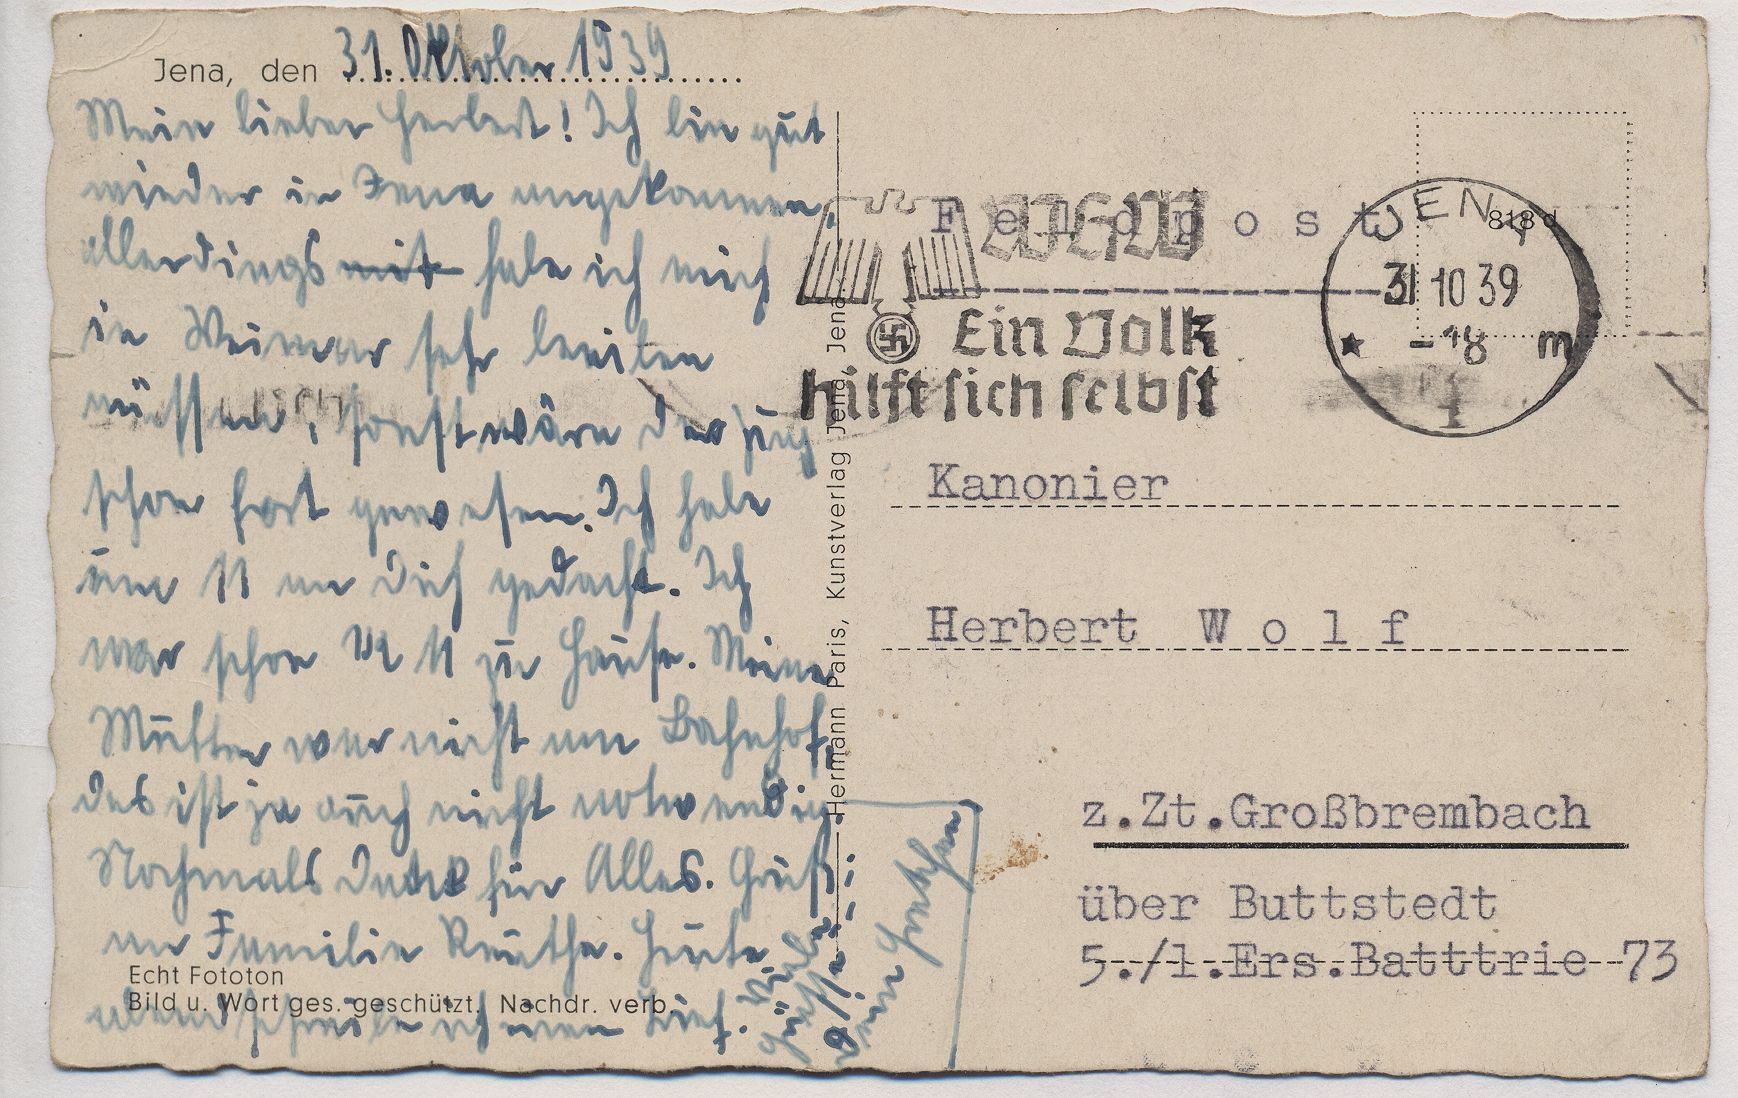 Jena, den 31. Oktober 1939
Mein lieber Herbert! Ich bin gut
wieder in Jena angekommen,
allerdings mit habe ich mich
in Weimar sehr beeilen
müssen, sonst wäre der Zug
schon fort gewesen. Ich habe
um 11 an Dich gedacht. Ich
war schon 1/2 11 zu Hause. Meine
Mutter war nicht am Bahnhof,
das ist ja auch nicht notwendig.
Nochmals Dank für Alles. Gruß
an Familie Reuthe. Heute
abend schreibe ich einen Brief.
Grüße
Dein Gretchen
Echt Fototon
Bild u. Wort ges. geschützt. Nachdr. verb.
Hermann Paris, Kunstverlag Jena, Jena.
Feldpost
WHW
Ein Volk
hilft sich selbst
JENA
818 d
31 10 39
* -18 m
1
Kanonier
Herbert Wolf
z.Zt.Großbrembach
über Buttstedt
5./1.Ers.Batttrie 73